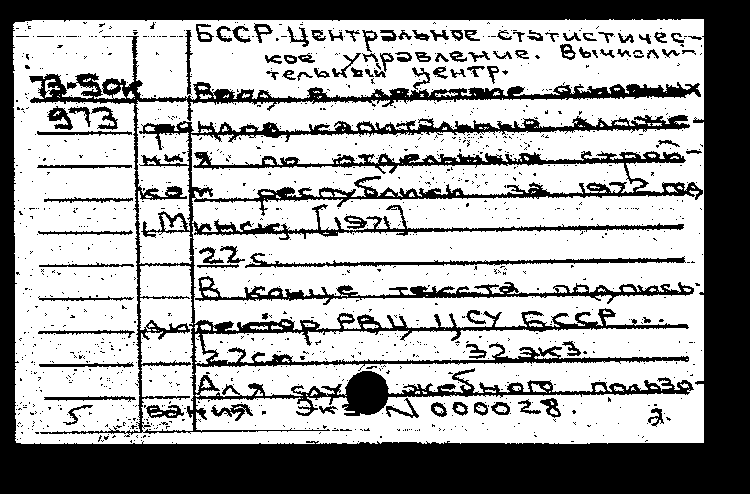 БССР. Центральное статистичес-
кое управление. Вычисли-
тельный центр.
73-50к Ввод в действие основных
973 фондов, капитальные вложе-
ния по отдельным строй-
кам республики за 1972 год
[Минск], [1971]
22 с.
В конце текста подпись:
директор РВЦ ЦСУ БССР ...
27см. 32 экз.
Для служебного пользо-
5 вания. Экз N 000028. 2.